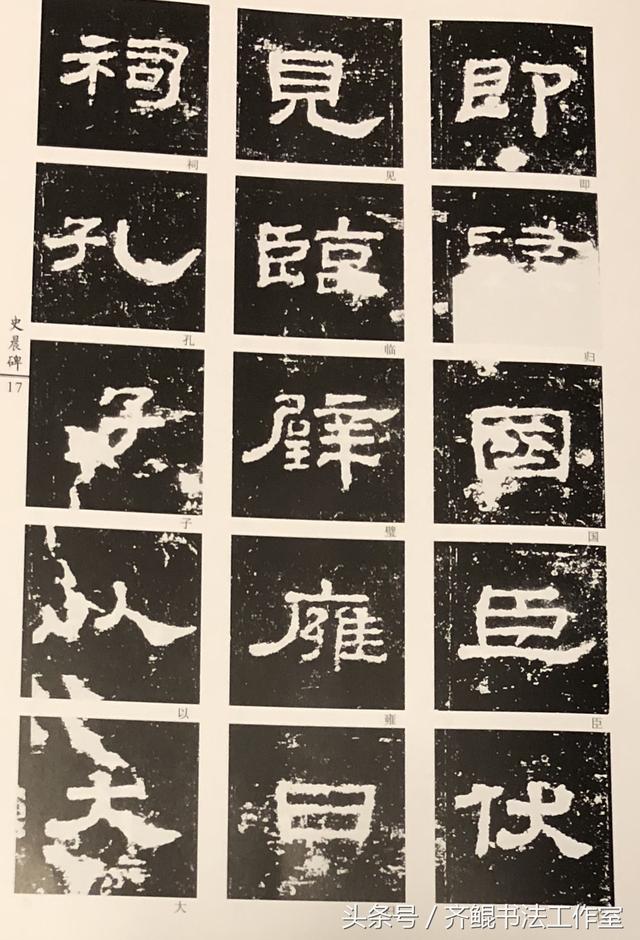 即
即
归
國
国
臣
臣
伏
見
见
臨
临
璧
璧
雍
雍
日
祠
祠
孔
孔
子
子
以
以
大
大
史晨碑
17
头条号 / 齐鲲书法工作室